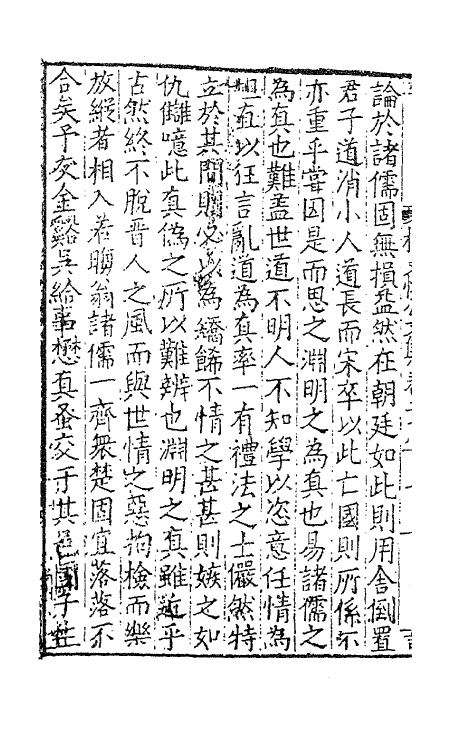 論於諸儒固無損益然在朝廷如此則用舍倒置
君子道消小人道長而宋卒以此亡國則所係不
亦重乎嘗因是而思之淵明之為真也易諸儒之
為真也難蓋世道不明人不知學以恣意任情為
坦直以狂言亂道為真率一有禮法之士儼然特
立於其間則必以為矯餙不情之甚甚則嫉之如
仇讎噫此真偽之所以難辨也淵明之真雖近乎
古然終不脫晉人之風而與世情之惡拘檢而樂
放縱者相入若晦翁諸儒一齊衆楚固宜落落不
合矣予友金谿吳給事懋真蚤交于其邑子